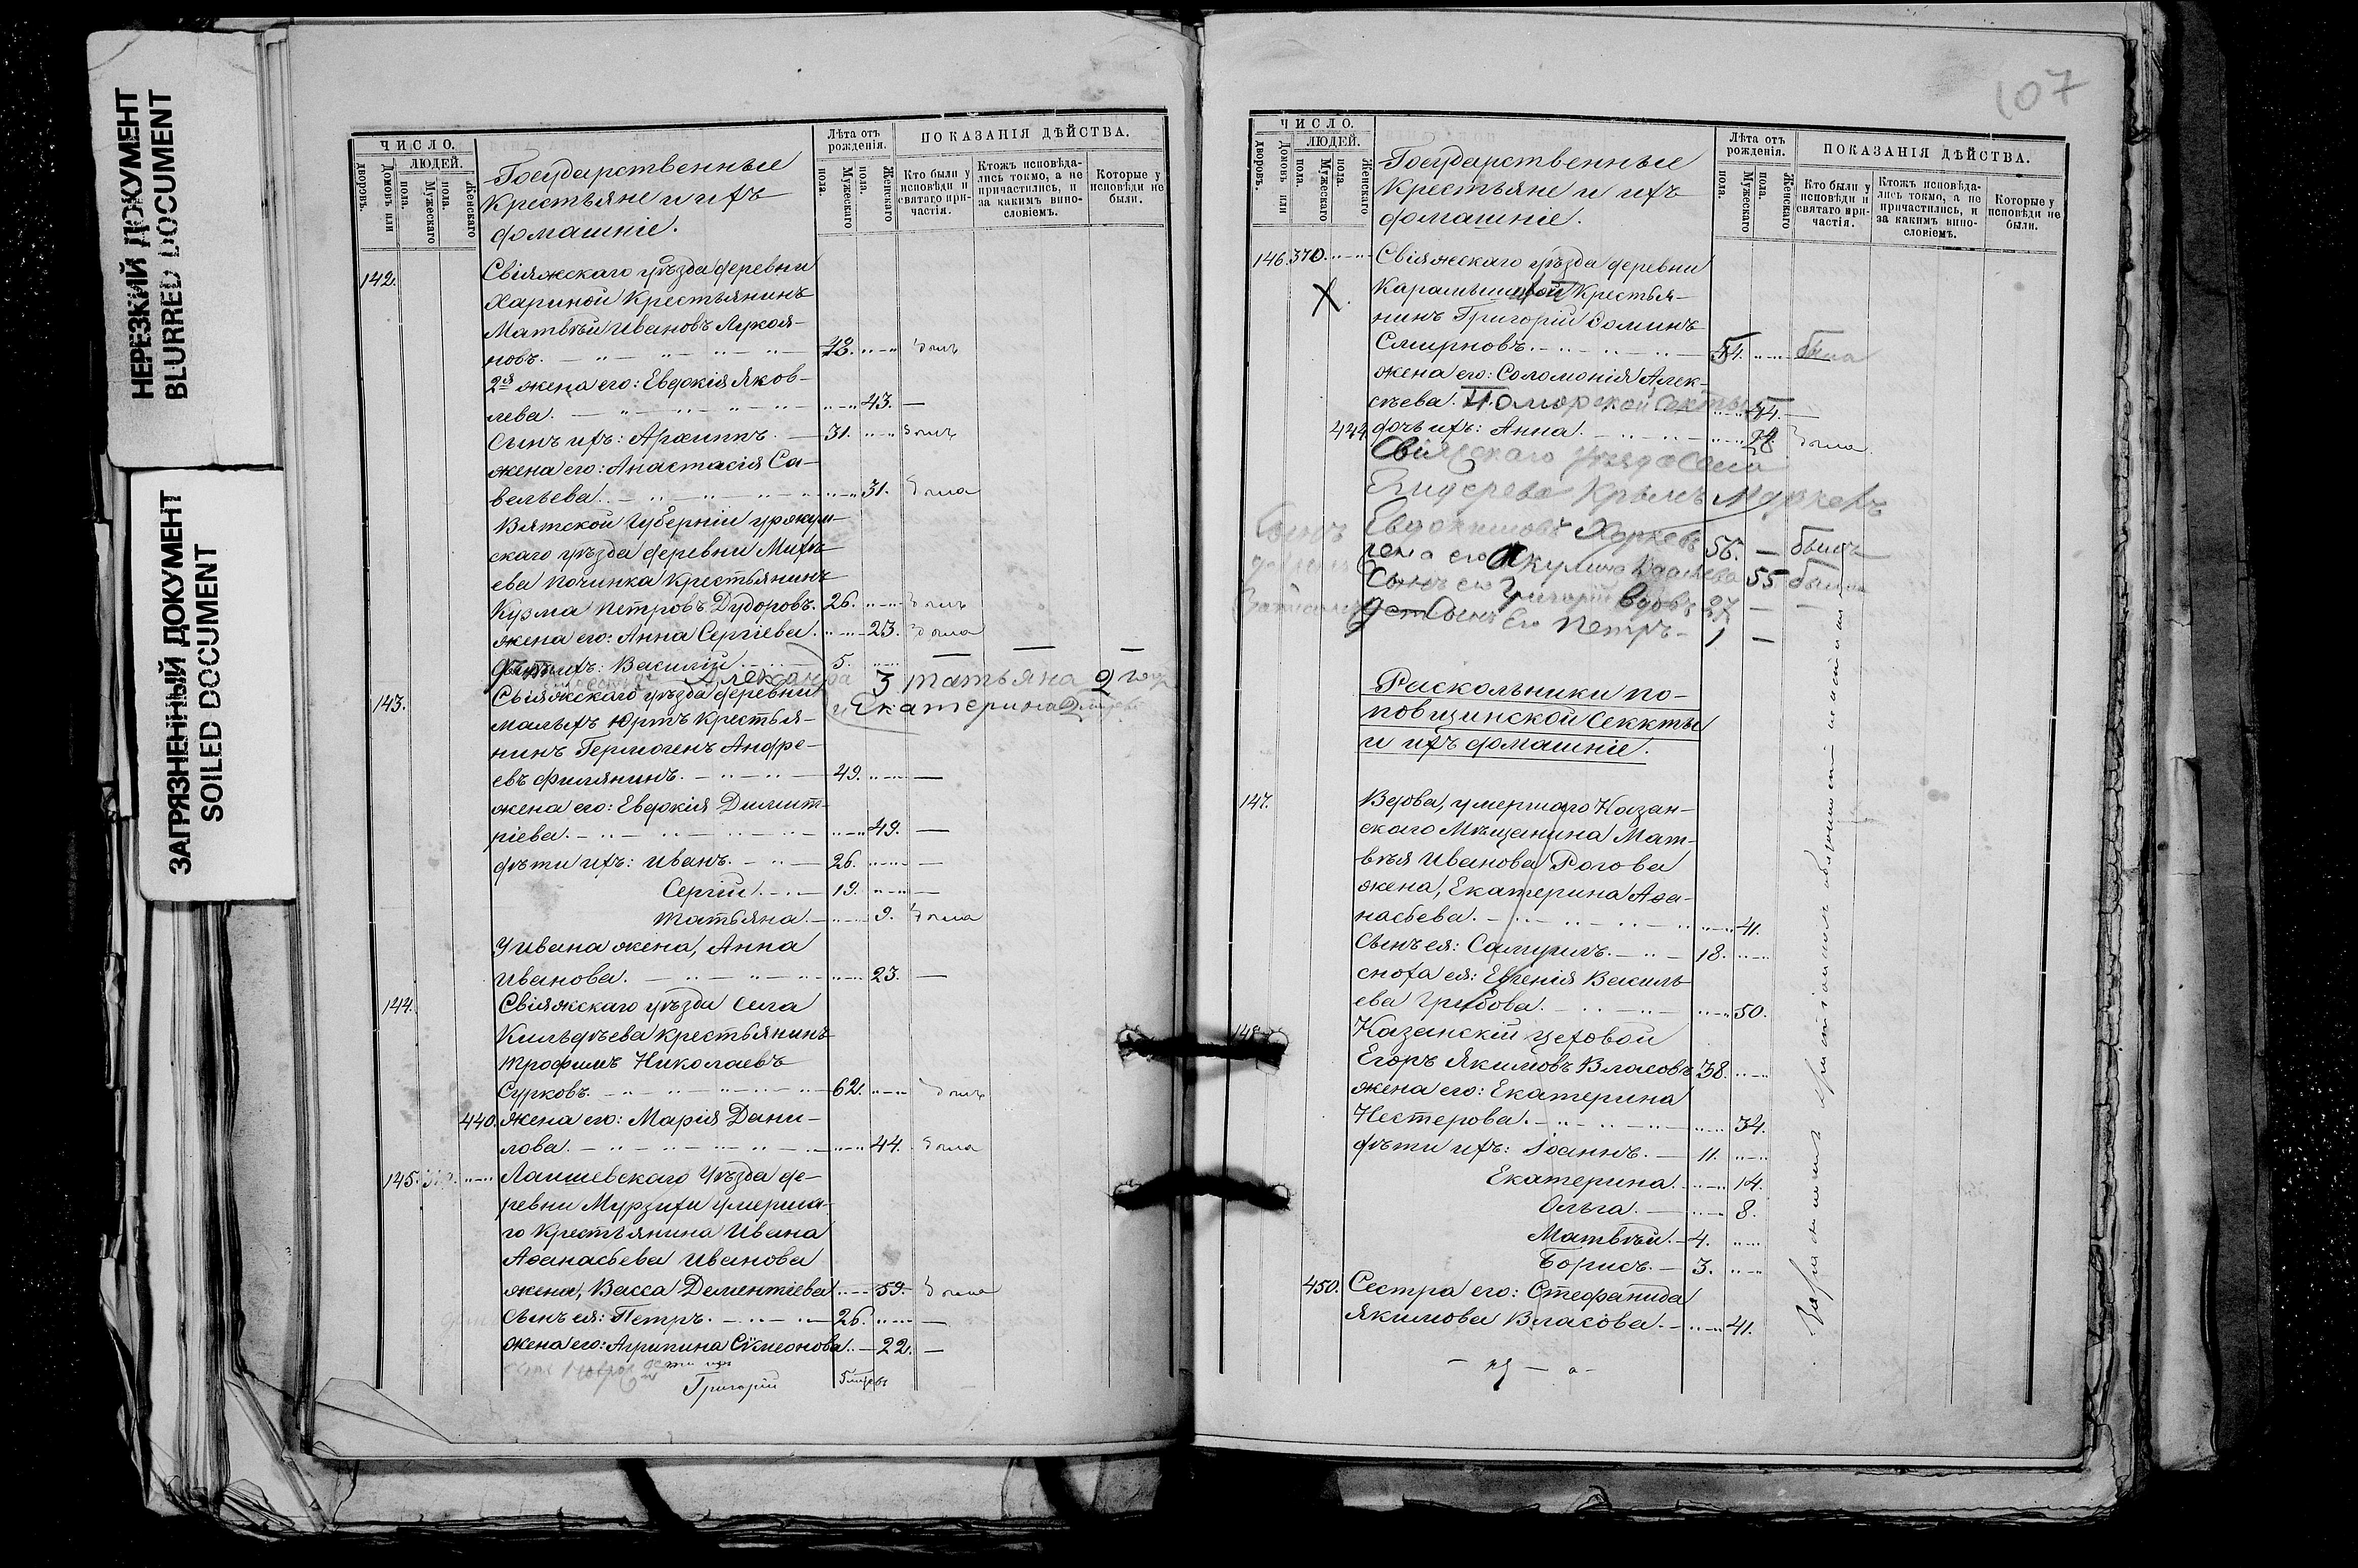 НЕРЕЗКИЙ ДОКУМЕНТ
BLURRED DOCUMENT
ЗАГРЯЗНЕННЫЙ ДОКУМЕНТ
SOILED DOCUMENT
ЧИСЛО.
ЛЮДЕЙ.
Домовъ или дворовъ.
Мужескаго пола.
Женскаго пола.
Государственные
крестьяне и ихъ
домашніе.
Лѣта отъ рожденія.
Мужескаго пола.
Женскаго пола.
ПОКАЗАНІЯ ДѢЙСТВА.
Кто были у исповѣди и святаго причастія.
Ктожъ исповѣдались токмо, а не причастились, и за какимъ винословіемъ.
Которые у исповѣди не были.
142. Свіяжскаго уѣзда деревни
Хариной крестьянинъ
Матвѣй Ивановъ Лукоя-
новъ. 42.
2я жена его: Евдокія Яков-
лева. 43. —
Сынъ ихъ: Архиппъ. 31.
жена его: Анастасія Са-
вельева. 31. была
Вятской губерніи уржум-
скаго уѣзда деревни Михѣ-
ева починка крестьянинъ
Кузма Петровъ Дудоровъ. 26. былъ
жена его: Анна Сергіева. 23. была
ихъ: Василій 5. —
Александра 3 Татьяна 2
и Екатерина 2
143. Свіяжскаго уѣзда деревни
малыхъ Юртъ крестья-
нинъ Гермогенъ Андре-
евъ Филянинъ. 49. —
жена его: Евдокія Димит-
ріева. 49. —
дѣти ихъ: Иванъ. 26. —
Сергій. 19. —
Татьяна. 9. была
У Ивана жена, Анна
Иванова. 23. —
144. Свіяжскаго уѣзда села
Кильдѣева крестьянинъ
Трофимъ Николаевъ
Сурковъ. 62. былъ
440. жена его: Марія Дани-
лова. 44. была
145. Лаишевскаго уѣзда де-
ревни Мурзихи умерша-
го крестьянина Ивана
Аѳанасьева Иванова
жена, Васса Дементіева 59. была
Сынъ ея: Петръ. 26. —
жена его: Агрипина Сѵмеонова. 22. —
Григорій
107
ЧИСЛО.
ЛЮДЕЙ.
Домовъ или дворовъ.
Мужескаго пола.
Женскаго пола.
Государственные
крестьяне и ихъ
домашніе.
Лѣта отъ рожденія.
Мужескаго пола.
Женскаго пола.
ПОКАЗАНІЯ ДѢЙСТВА.
Кто были у исповѣди и святаго причастія.
Ктожъ исповѣдались токмо, а не причастились, и за какимъ винословіемъ.
Которые у исповѣди не были.
146. 370. Свіяжскаго уѣзда деревни
Карамышевой крестья-
нинъ Григорій Ѳоминъ
Смирновъ.
жена его: Соломонія Алек-
сѣева. Поморской секты
444. дочь ихъ: Анна. была
Свіяжскаго уѣзда села
Маркелъ
Евдокимовъ 56. — былъ
жена его Акулина 55 была
Сынъ его Григорій вдовъ 27 —
Сынъ его Петръ — 1 —
Раскольники по-
повщинской секкты
и ихъ домашніе.
147. Вдова, умершаго Казан-
скаго Мѣщанина Мат-
вѣя Иванова Рогова
жена, Екатерина Аѳа-
насьева. 41.
Сынъ ея: Самуилъ. 18.
сноха ея: Евгенія Василь-
ева Грибова. 50.
148. Казанскій цеховой
Егоръ Якимовъ Власовъ 38.
жена его: Екатерина
Нестерова. 34.
дѣти ихъ: Іоаннъ. 11.
Екатерина. 14.
Ольга. 8.
Матвѣй. 4.
Борисъ. 3.
450. Сестра его: Стефанида
Якимова Власова. 41.